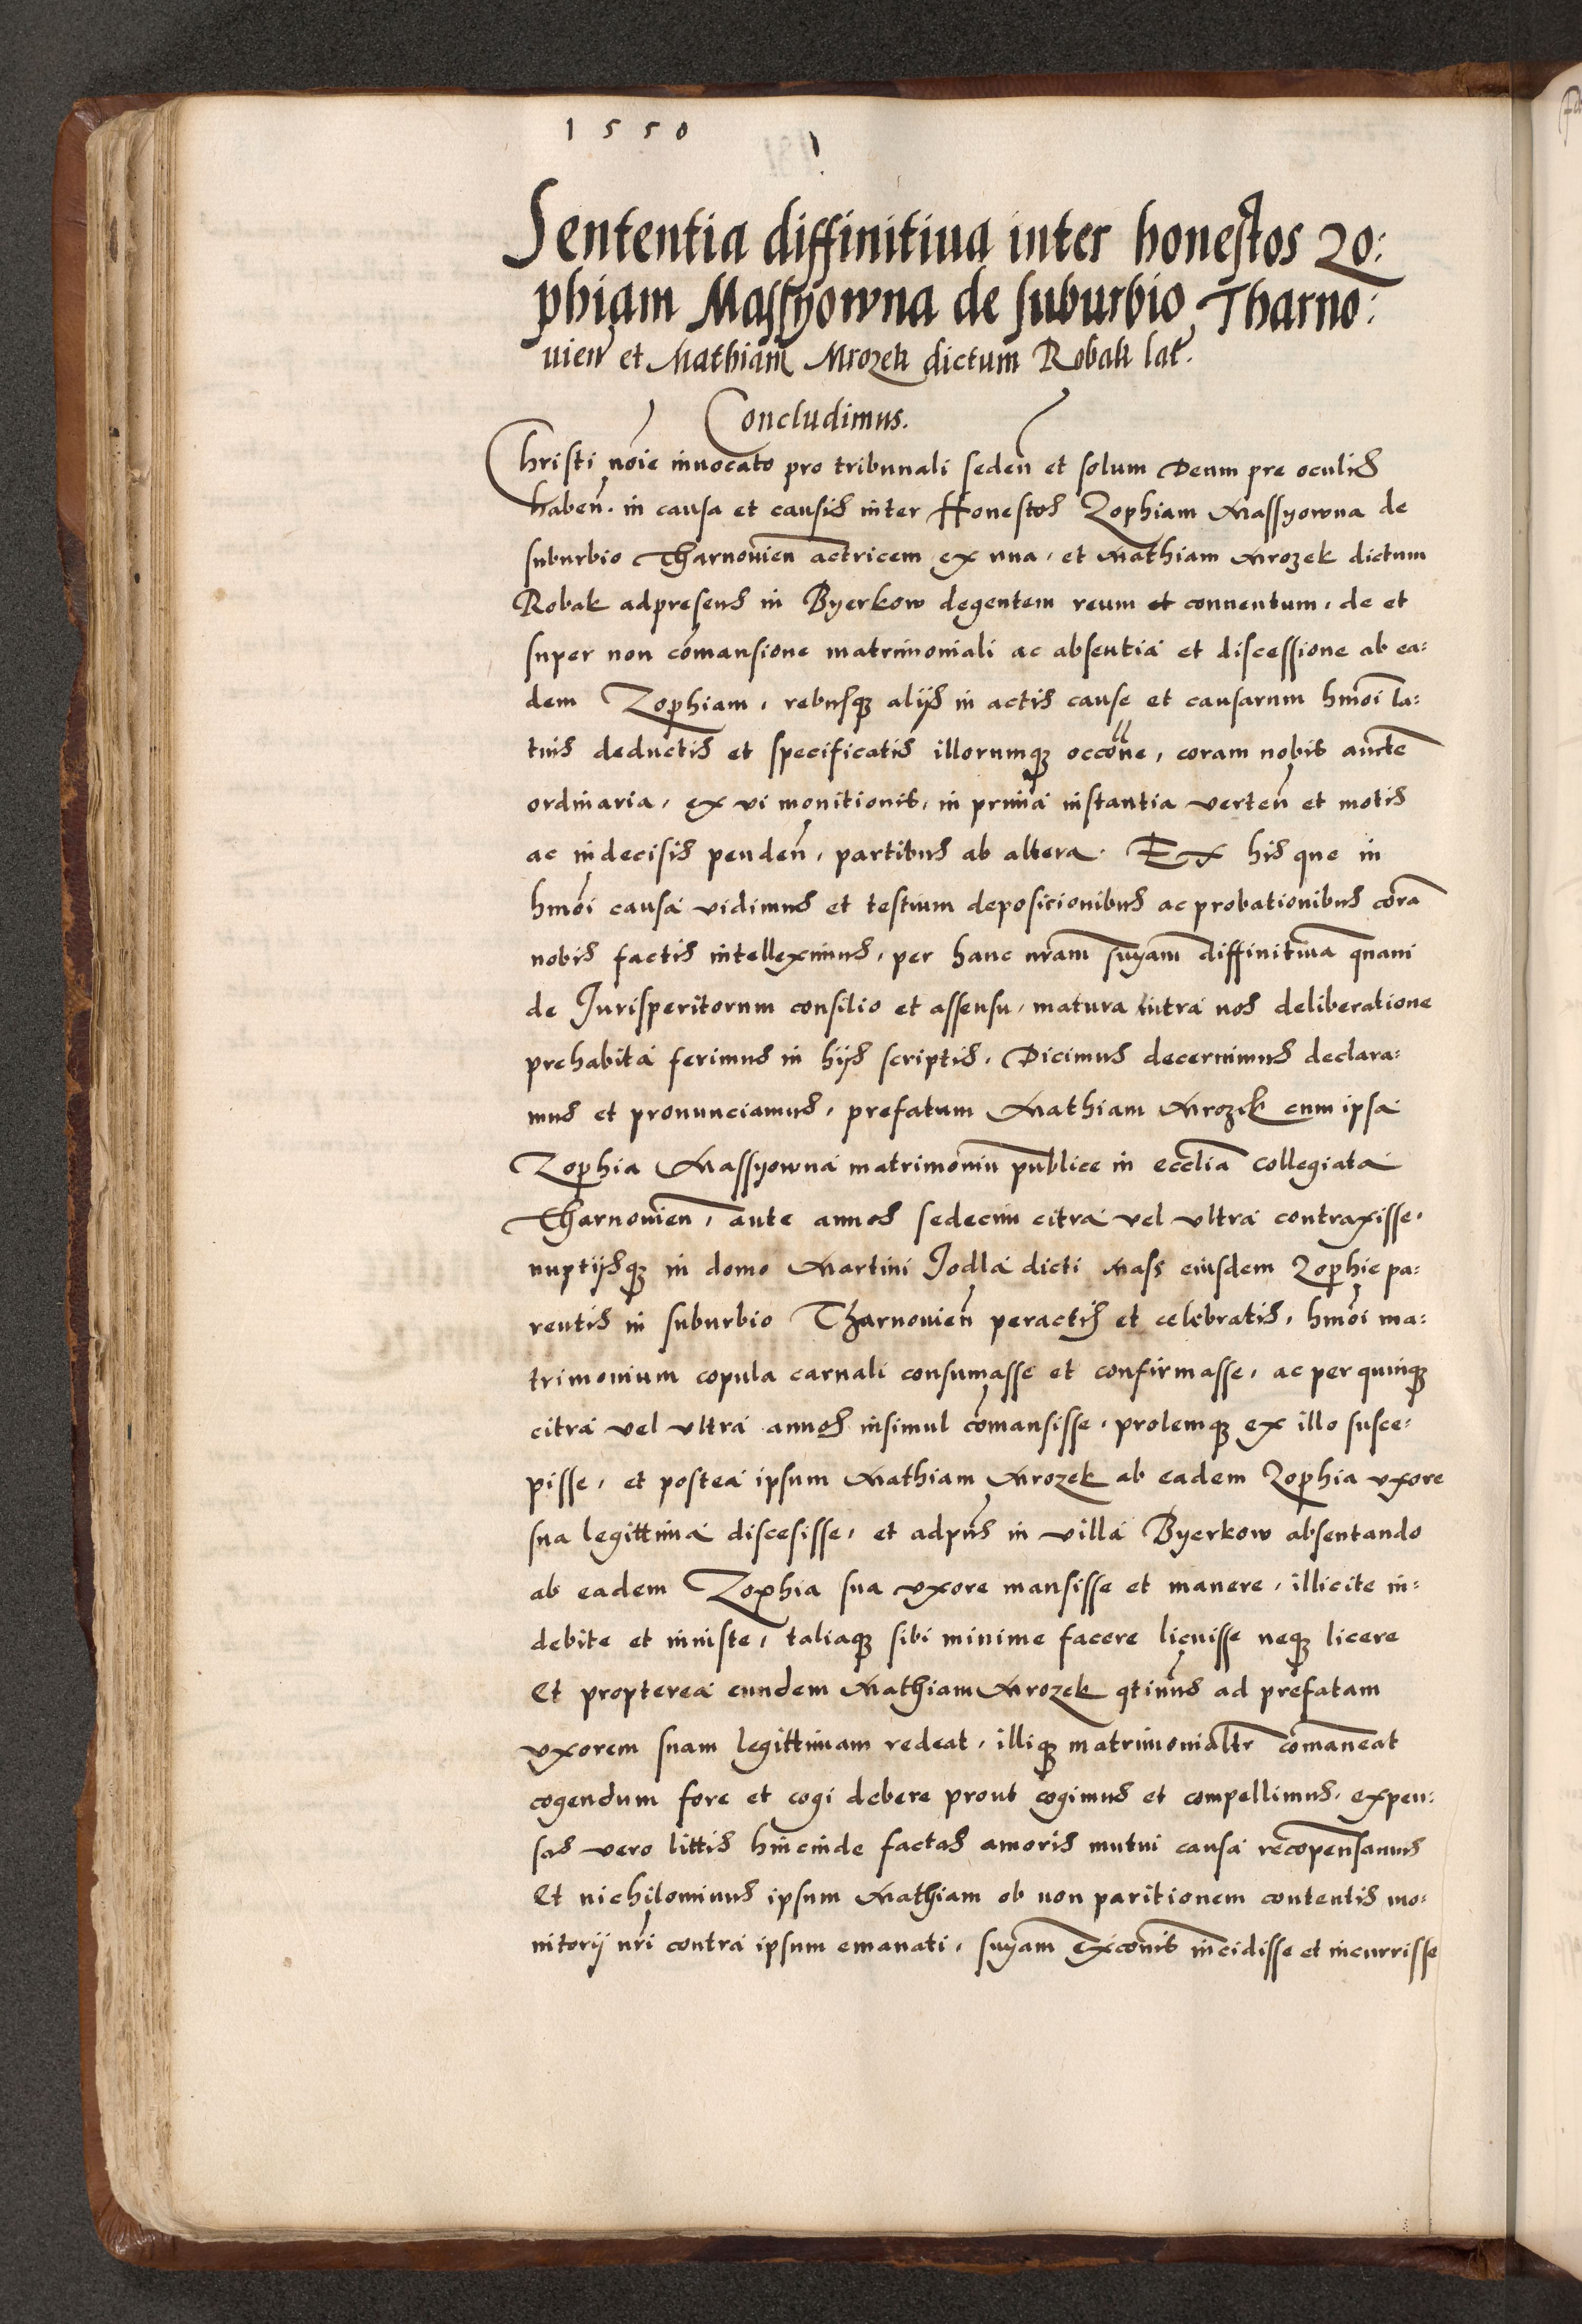 1550
Sententia diffinitiua inter honestos Zo:
phiam Massyowna de suburbio Tharno:
uien̄ et Mathiam Mrozek dictum Robak lat̄.
Concludimus.
Christi nōie inuocato pro tribunali seden̄ et solum Deum pre oculis
haben̄. in causa et causis inter Honestos Zophiam Massyowna de
suburbio Tharnouien̄ actricem ex una, et Mathiam Mrozek dictum
Robak adpresens in Byerkow degentem reum et conuentum, de et
super non cōmansione matrimoniali ac absentia et discessione ab ea:
dem Zophiam, rebusq; alijs in actis cause et causarum hmōi la:
tius deductis et specificatis illorumq; occōne, coram nobis aucte
ordinaria, ex vi monitionis, in prima instantia verten̄ et motis
ac indecisis penden̄, partibus ab altera. Ex his que in
hmōi causa vidimus et testium deposicionibus ac probationibus corā
nobis factis intelleximus, per hanc nram̄ suyam̄ diffinitiuā quam
de Jurisperitorum consilio et assensu, matura intra nos deliberatione
prehabita ferimus in hijs scriptis, Dicimus decernimus declara:
mus et pronunciamus, prefatum Mathiam Mrozek cum ipsa
Zophia Massyowna matrimoniū publice in ecclia collegiata
Tharnouien̄, ante annos sedecim citra vel vltra contraxisse,
nuptijsq; in domo Martini Jodla dicti Mass eiusdem Zophie pa:
rentis in suburbio Tharnouien̄ peractis et celebratis, hmōi ma:
trimonium copula carnali consumasse et confirmasse, ac per quinq;
citra vel vltra annos insimul cōmansisse, prolemq; ex illo susce:
pisse, et postea ipsum Mathiam Mrozek ab eadem Zophia vxore
sua legittima discesisse, et adpn̄s in villa Byerkow absentando
ab eadem Zophia sua vxore mansisse et manere, illicite in:
debite et iniuste, taliaq; sibi minime facere licuisse neq; licere
Et propterea eundem Mathiam Mrozek qtinus ad prefatam
vxorem suam legittimam redeat, illiq; matrimonialtr cōmaneat
cogendum fore et cogi debere prout cogimus et compellimus, expen:
sas vero littis hincinde factas amoris mutui causa recōpensamus
Et nichilominus ipsum Mathiam ob non paritionem contentis mo:
nitorij nri contra ipsum emanati, suyam̄ exconis̄ incidisse et incurrisse